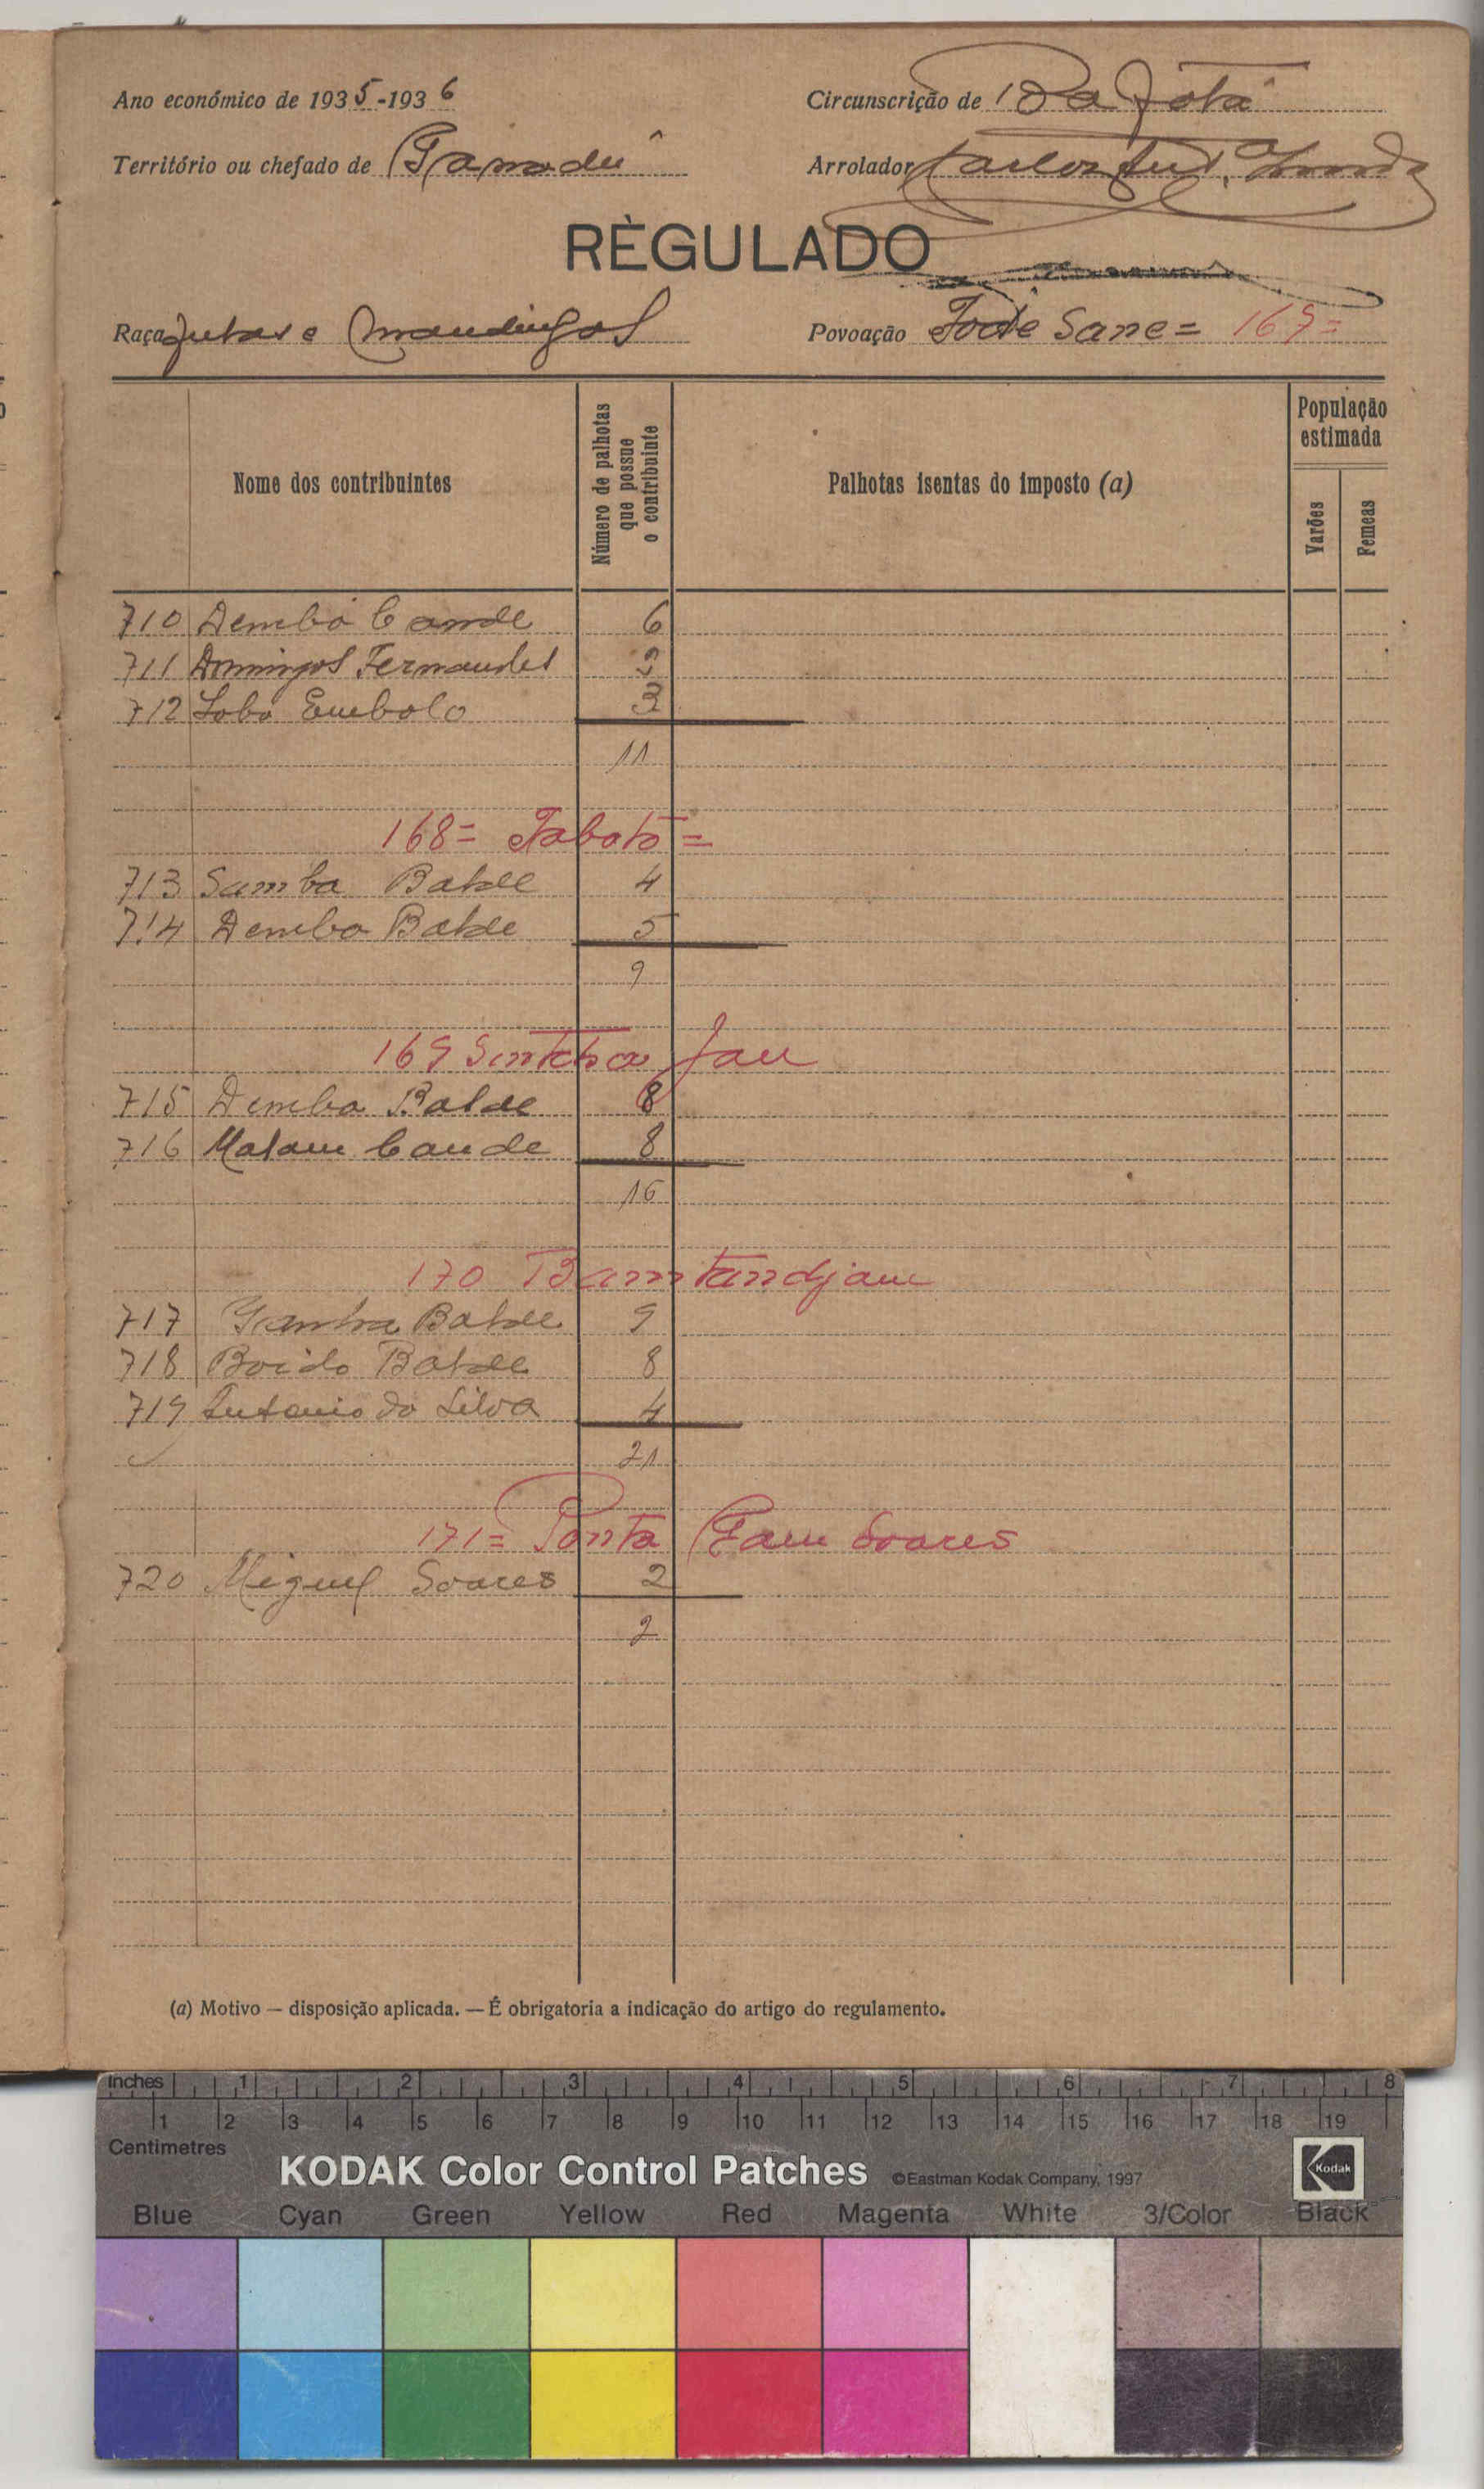 Ano económico de 1935-1936
Circunscrição de Bafatá
Território ou chefado de Ganadú
Arrolador Carlos
RÈGULADO
Raça Futas e Mandingas
Povoação Fodé Sane = 167 =
Nome dos contribuintes
Número de palhotas que possue o contribuinte
Palhotas isentas do imposto (a)
População estimada
Varões
Femeas
710 Demba Cande 6
711 Domingos Fernandes 2
712 Lobo Embolo 3
11
168 = Tabató =
713 Samba Balde 4
714 Demba Balde 5
9
169 Sintcha Jau
715 Demba Balde 8
716 Malam Cande 8
16
170 Bamtandjam
717 Balde 9
718 Boido Balde 8
719 Antonio da Silva 4
21
171 = Ponta Gam Soares
720 Miguel Soares 2
2
(a) Motivo — disposição aplicada. — É obrigatoria a indicação do artigo do regulamento.
Inches 1 2 3 4 5 6 7 8
1 2 3 4 5 6 7 8 9 10 11 12 13 14 15 16 17 18 19
Centimetres
KODAK Color Control Patches ©Eastman Kodak Company, 1997 Kodak
Blue Cyan Green Yellow Red Magenta White 3/Color Black